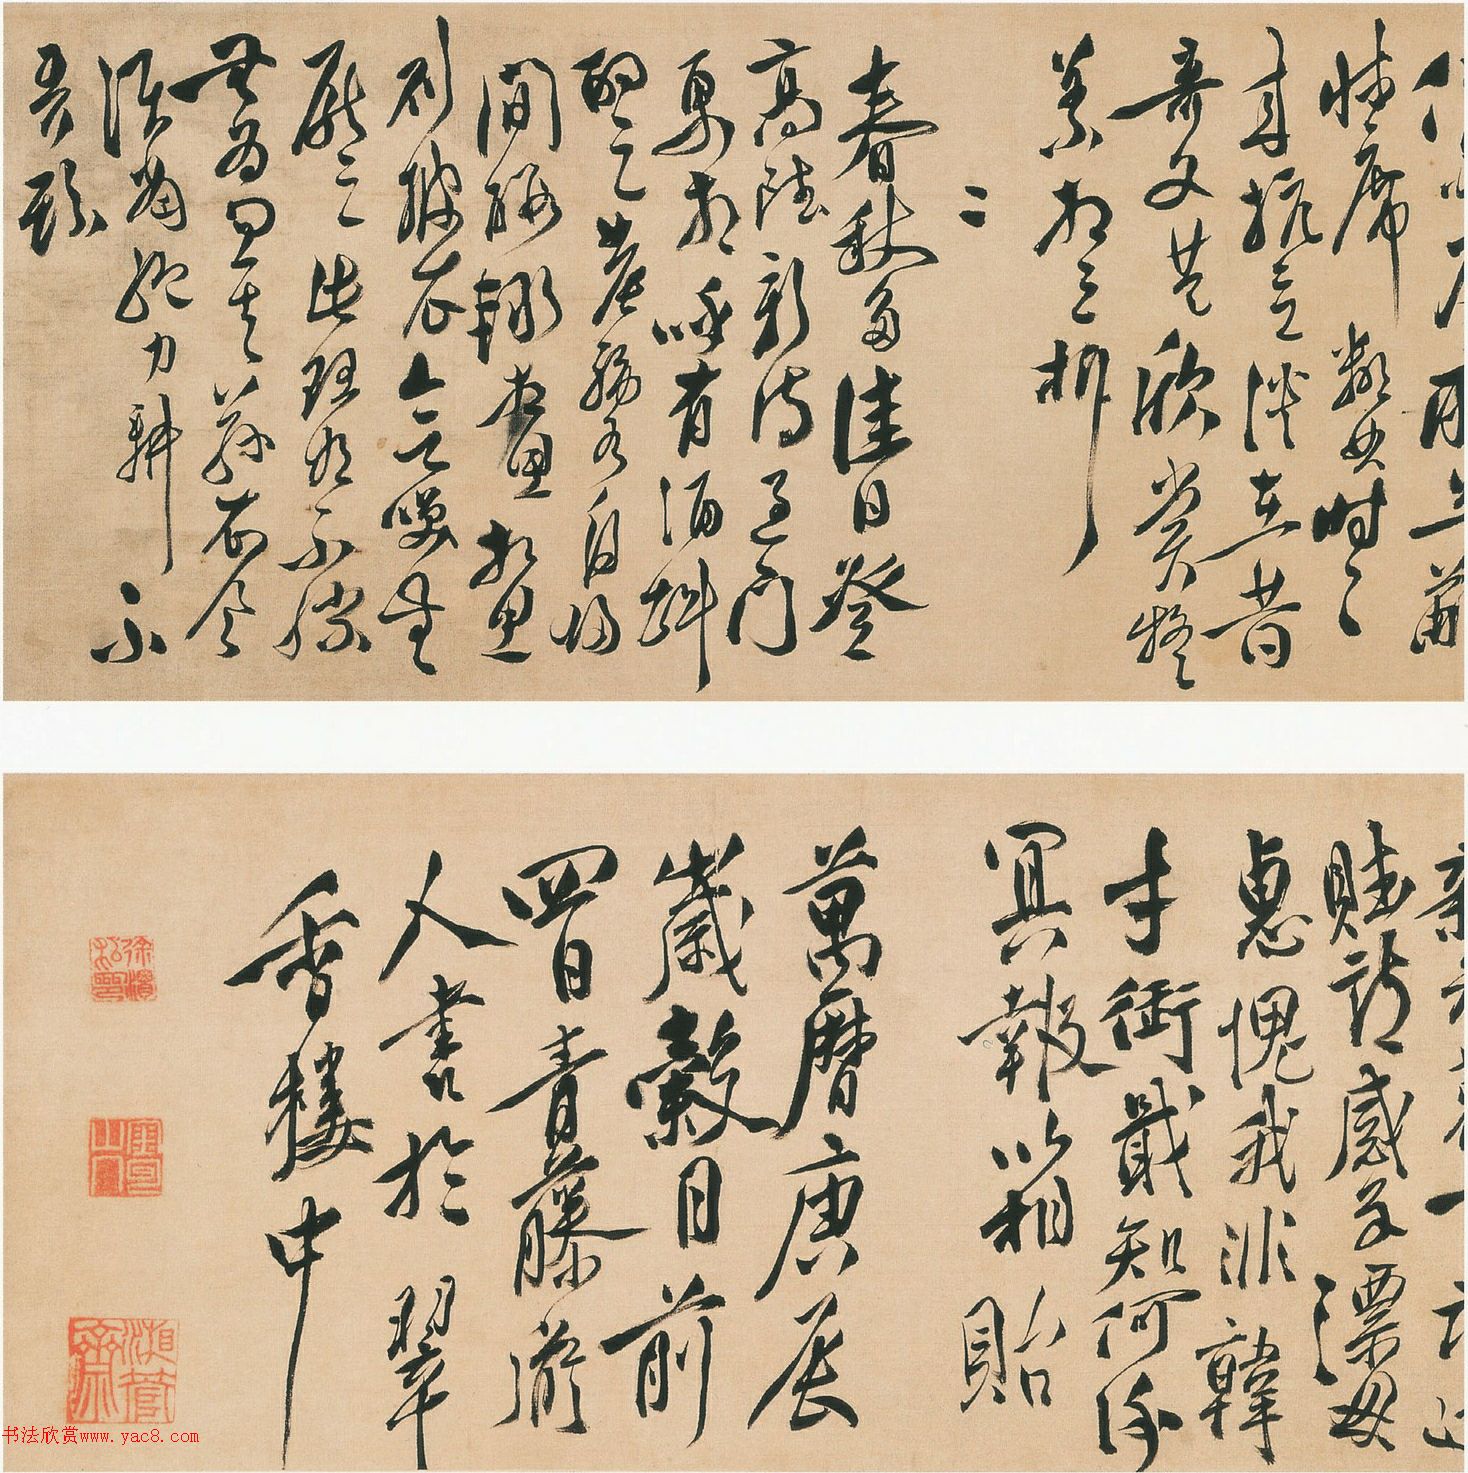 牀席鄰曲時時
來抗言談在昔
奇文共欣賞疑
義相与析
二
春秋多佳日登
高陸新詩過門
更相呼有酒斟
酌之農務各自歸
閒暇輒相思相思
則披衣言笑無
厭時此理將不勝
無為忽去茲衣食
須當紀力耕不
吾欺
賦詩感子漂母
惠愧我非韓
才銜戢知何謝
冥報以相貽
萬曆庚辰
歲穀日前
四日青藤道
人書於翠
香樓中
书法欣赏www.yac8.com